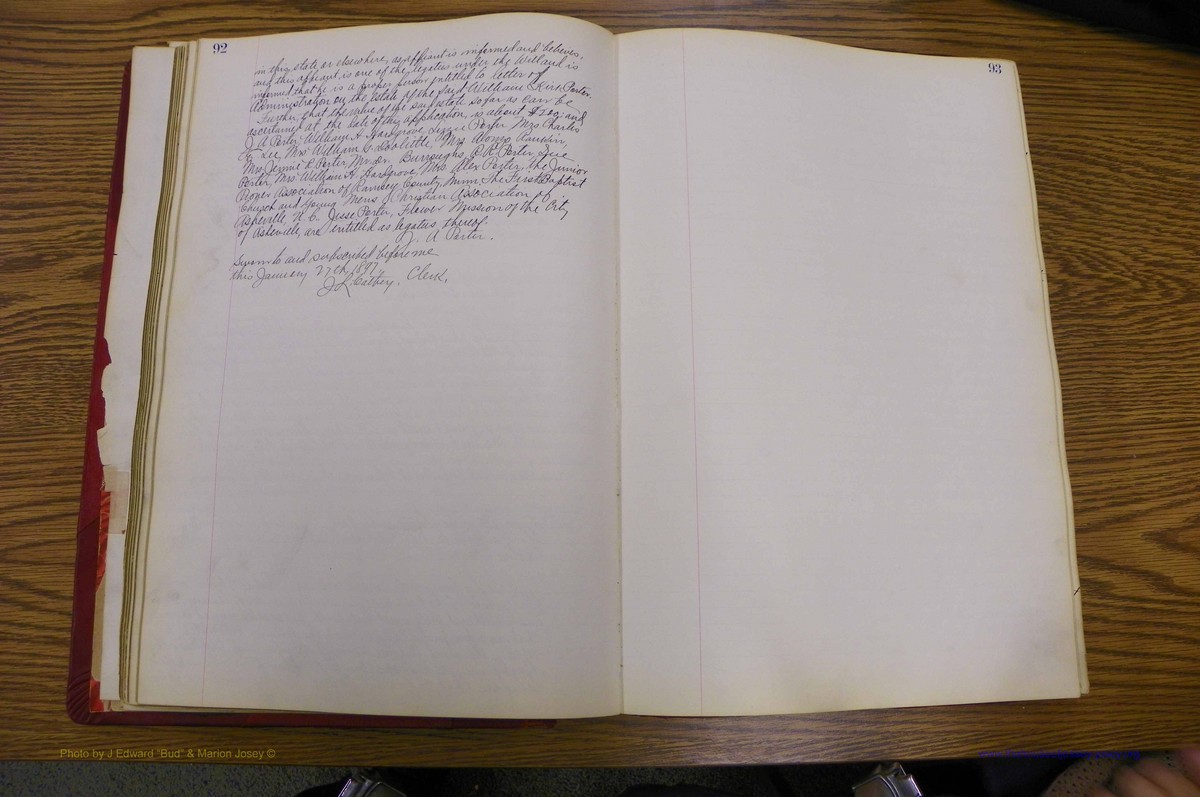 92
in this state or elsewhere, as affiant is informed and believes,
and this affiant is one of the legatees under the Will and is
informed that he is a proper person entitled to letter of
Administration on the estate of the said William Kirk Porter.
Further, that the value of the said estate so far as can be
ascertained at the date of this application is about $200; and
J. A. Porter, William H. Hargrove, Lizzie Porter, Mrs Charles
E. Lee, Mrs William G. Doolittle, Mrs Alonzo Rankin,
Mrs Jennie L. Porter, Mr. Dr. Burroughs, R. R. Porter, Sue
Porter, Mrs William H. Hargrove, Mrs Alex Porter, the Junior
Pioneer Association of Ramsey County, Minn. The First Baptist
Church and Young Mens Christian Association of
Asheville N. C. Jesse Porter, Flower Mission of the City
of Asheville, are entitled as legatees thereof.
J. A. Porter.
Sworn to and subscribed before me
this January 27th 1897.
J L Cathey. Clerk.
93
Photo by J Edward "Bud" & Marion Josey ©